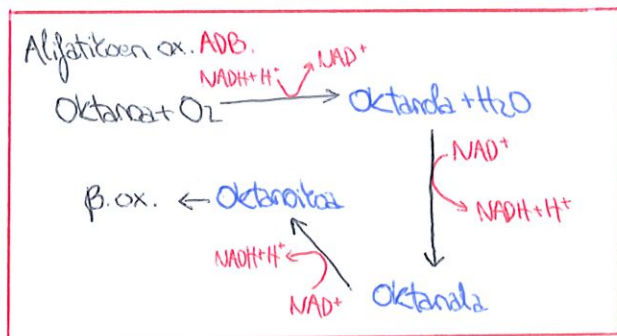 Alifatikoen ox. ADB.
NADH+H⁺ NAD⁺
Oktanoa+O2 Oktanola+H2O
NAD⁺
β.ox. ← Oktanoikoa
NADH+H⁺
NADH+H⁺
NAD⁺
Oktanala